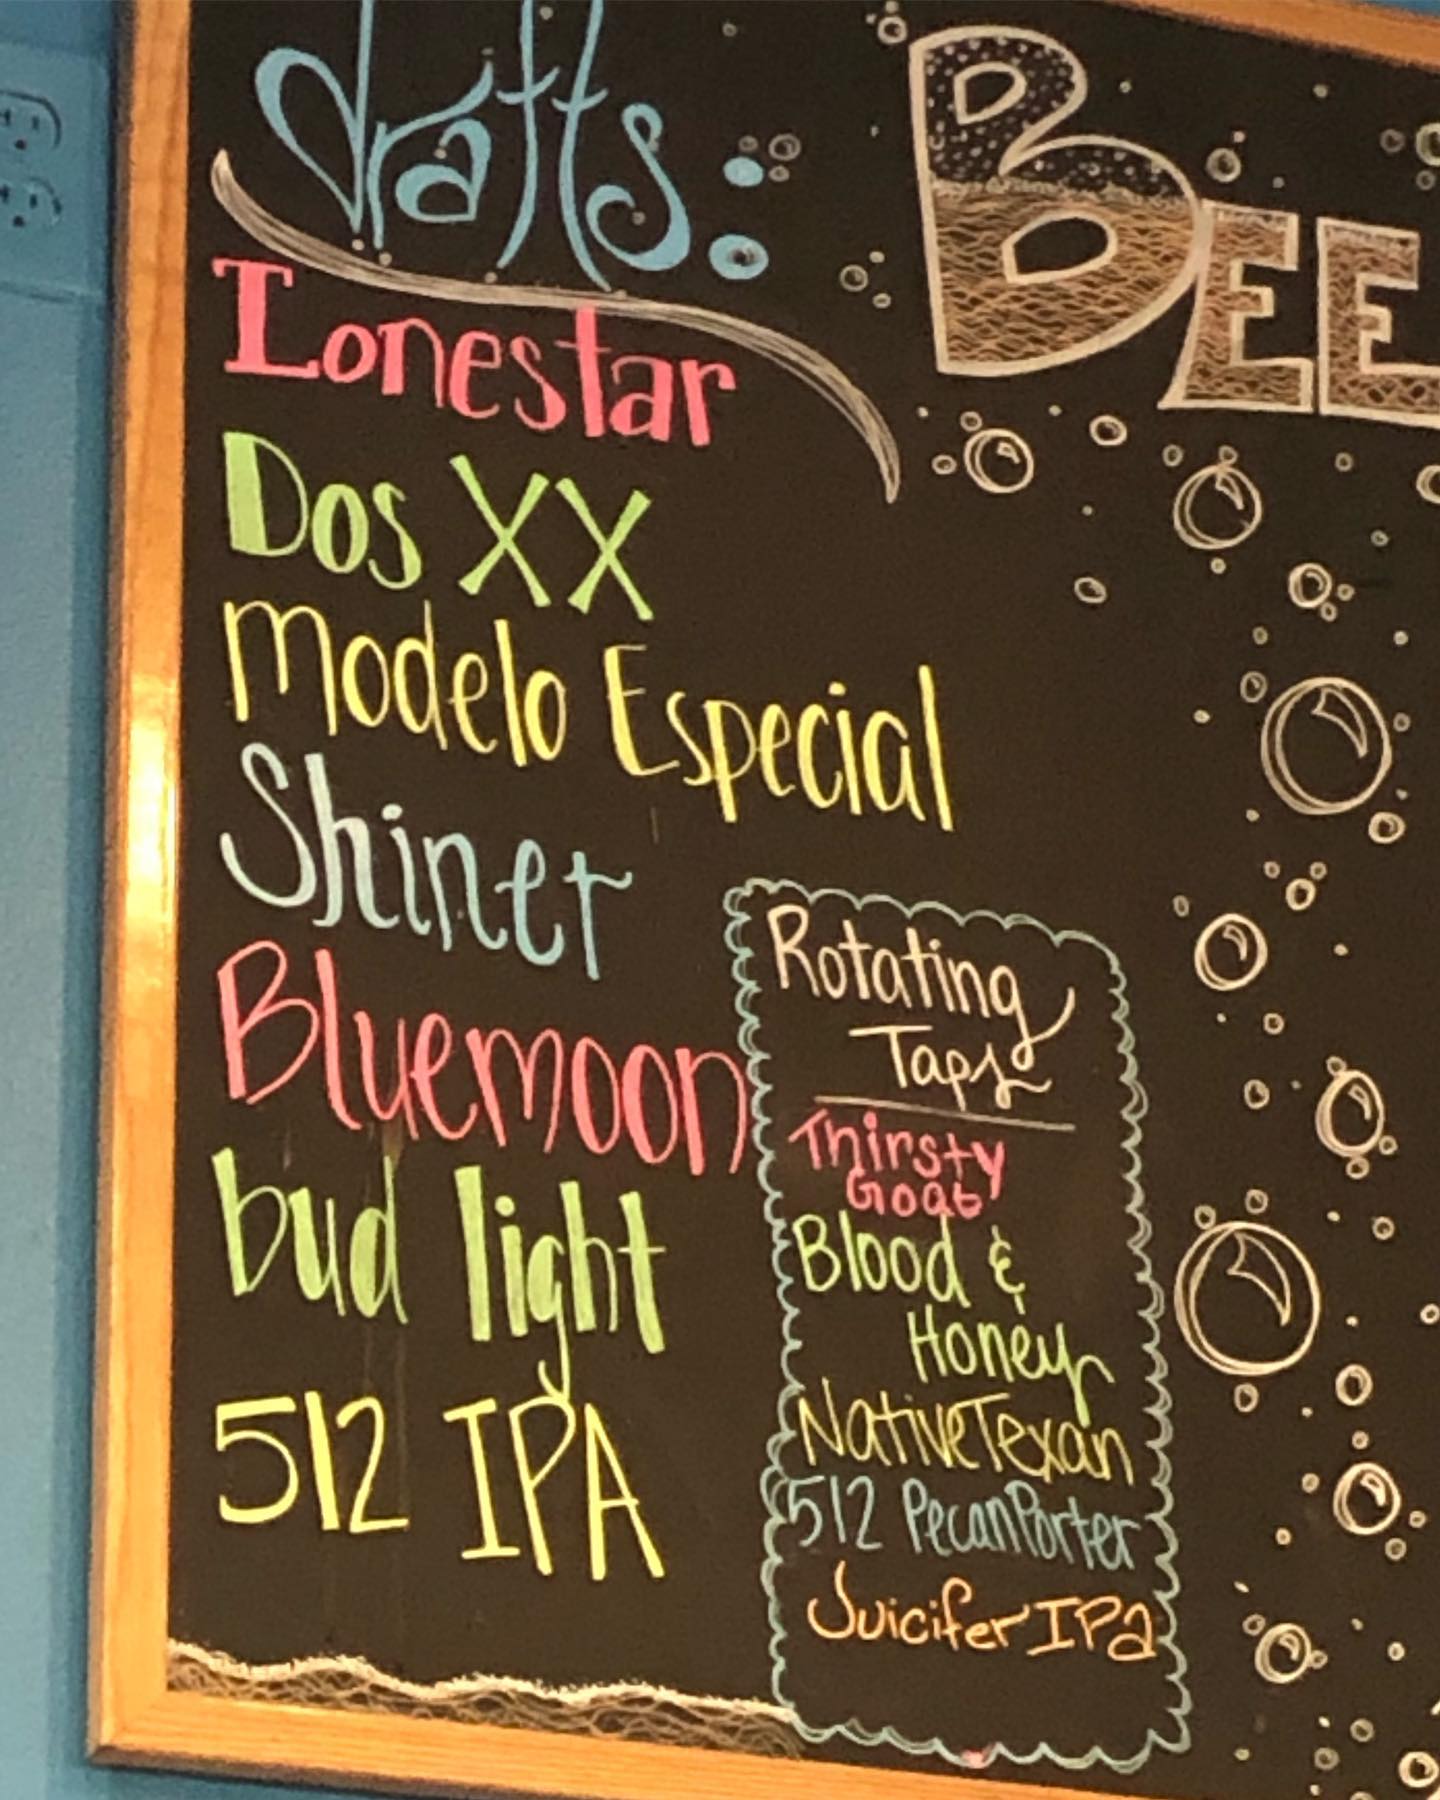 drafts:
BEE
Lonestar
Dos XX
Modelo Especial
Shiner
Bluemoon
bud light
512 IPA
Rotating
Taps
Thirsty
Goat
Blood &
Honey
Native Texan
512 Pecan Porter
Juicifer IPa